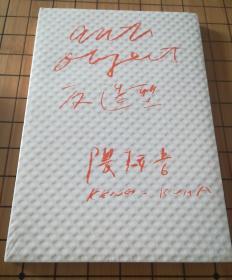 anti
object
反造型
隈研吾